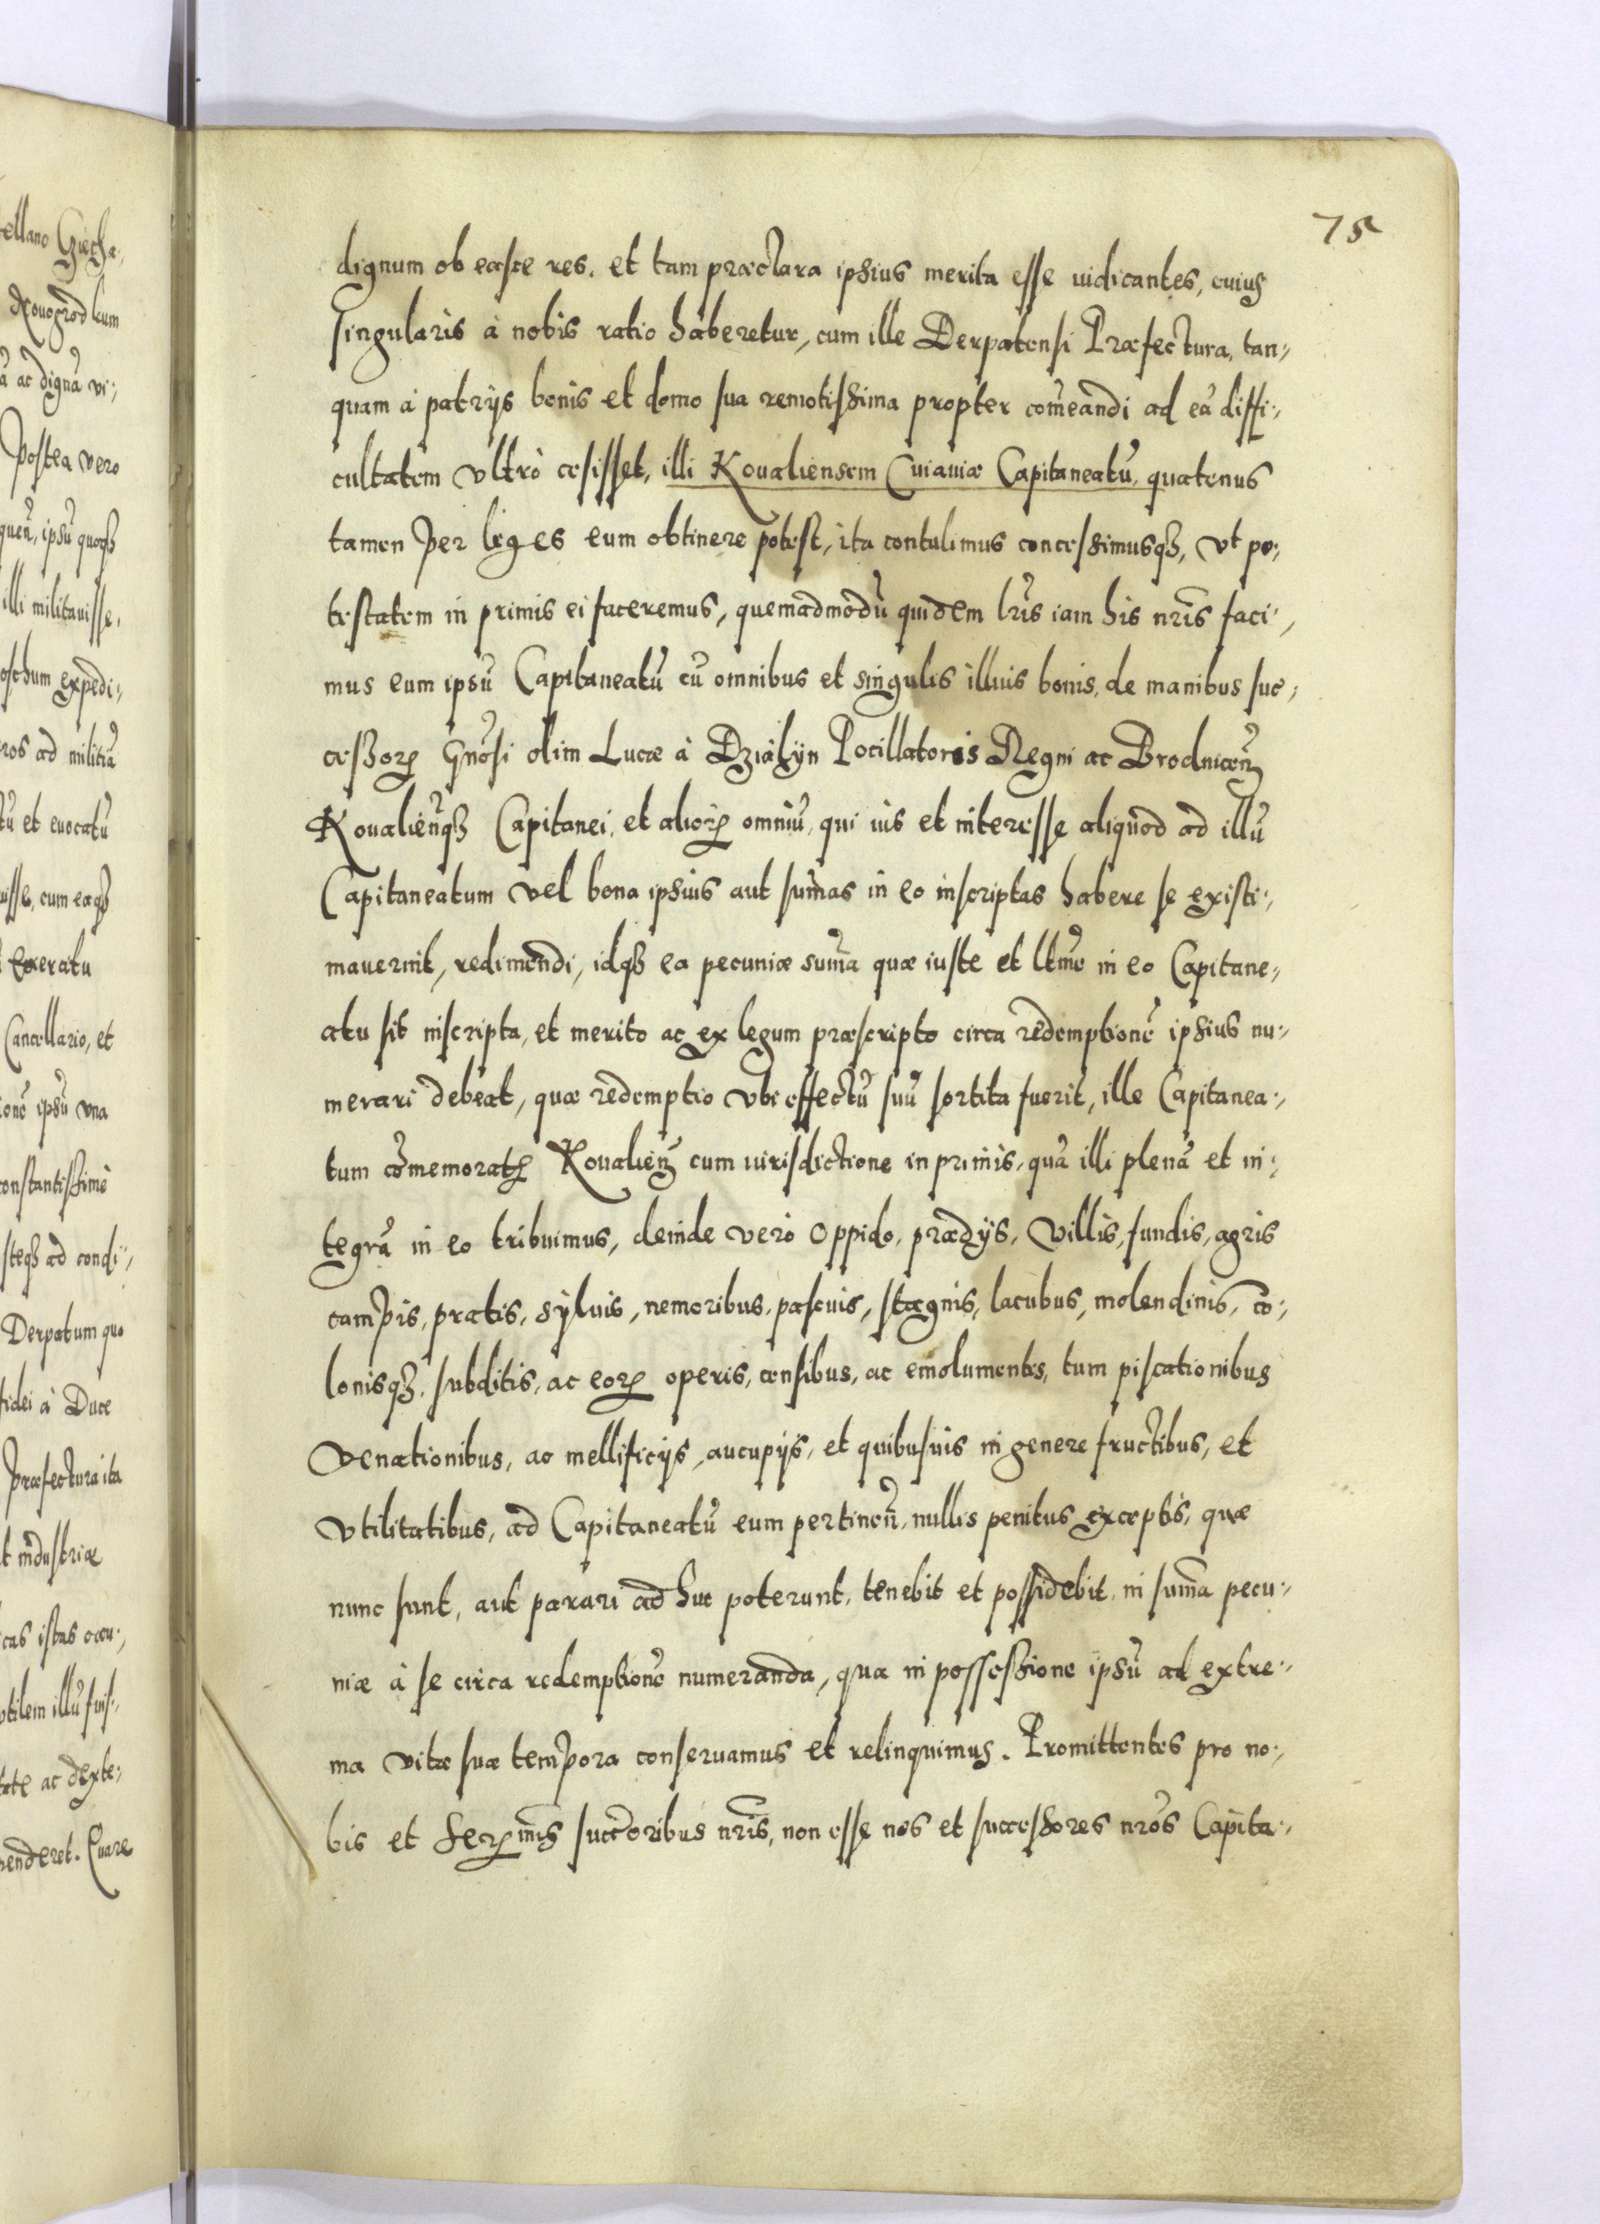 75
dignum ob easce res. et tam præclara ipsius merita esse iudicantes, cuius
singularis à nobis ratio haberetur, cum ille Derpatensi Præfectura, tan-
quam à patrijs bonis et domo sua remotissima propter com̃eandi ad eã diffi-
cultatem vltrò cesisset, illi Koualiensem Cuiauiæ Capitaneatũ, quatenus
tamen per leges eum obtinere potest, ita contulimus concessimusqȝ, vt po-
testatem in primis ei faceremus, quemadmodũ quidem lr̃is iam his nr̃is faci-
mus eum ipsũ Capitaneatũ cũ omnibus et singulis illius bonis, de manibus suc-
cessorꝝ Gnõsi olim Lucæ à Dzialÿn Pocillatoris Regni ac Brodniceñ
Koualieñqȝ Capitanei, et aliorꝝ omniũ, qui ius et interesse aliquod ad illũ
Capitaneatum vel bona ipsius aut sum̃as in eo inscriptas habere se existi-
mauerint, redimendi, idqȝ ea pecuniæ sum̃a quæ iuste et ltm̃e in eo Capitane-
atu sit inscripta, et merito ac ex legum præscripto circa redemptionẽ ipsius nu-
merari debeat, quæ redemptio vbi effectũ suũ sortita fuerit, ille Capitanea-
tum com̃emoratꝝ Koualieñ cum iurisdictione in primis, quã illi plenã et in-
tegrã in eo tribuimus, deinde verò Oppido, prædijs, villis, fundis, agris
campis, pratis, sÿluis, nemoribus, pascuis, stagnis, lacubus, molendinis, co-
lonisqȝ, subditis, ac eorꝝ operis, censibus, ac emolumentis, tum piscationibus
venationibus, ac mellificijs, aucupijs, et quibusuis in genere fructibus, et
vtilitatibus, ad Capitaneatũ eum pertineñ, nullis penitus exceptis, quæ
nunc sunt, aut parari ad huc poterunt, tenebit et possidebit, in sum̃a pecu-
niæ à se circa redemptionẽ numeranda, qua in possessione ipsũ ad extre-
ma vitæ suæ tempora conseruamus et relinquimus. Promittentes pro no-
bis et Serꝝmis succ̃oribus nr̃is, non esse nos et successores nr̃os Capita-